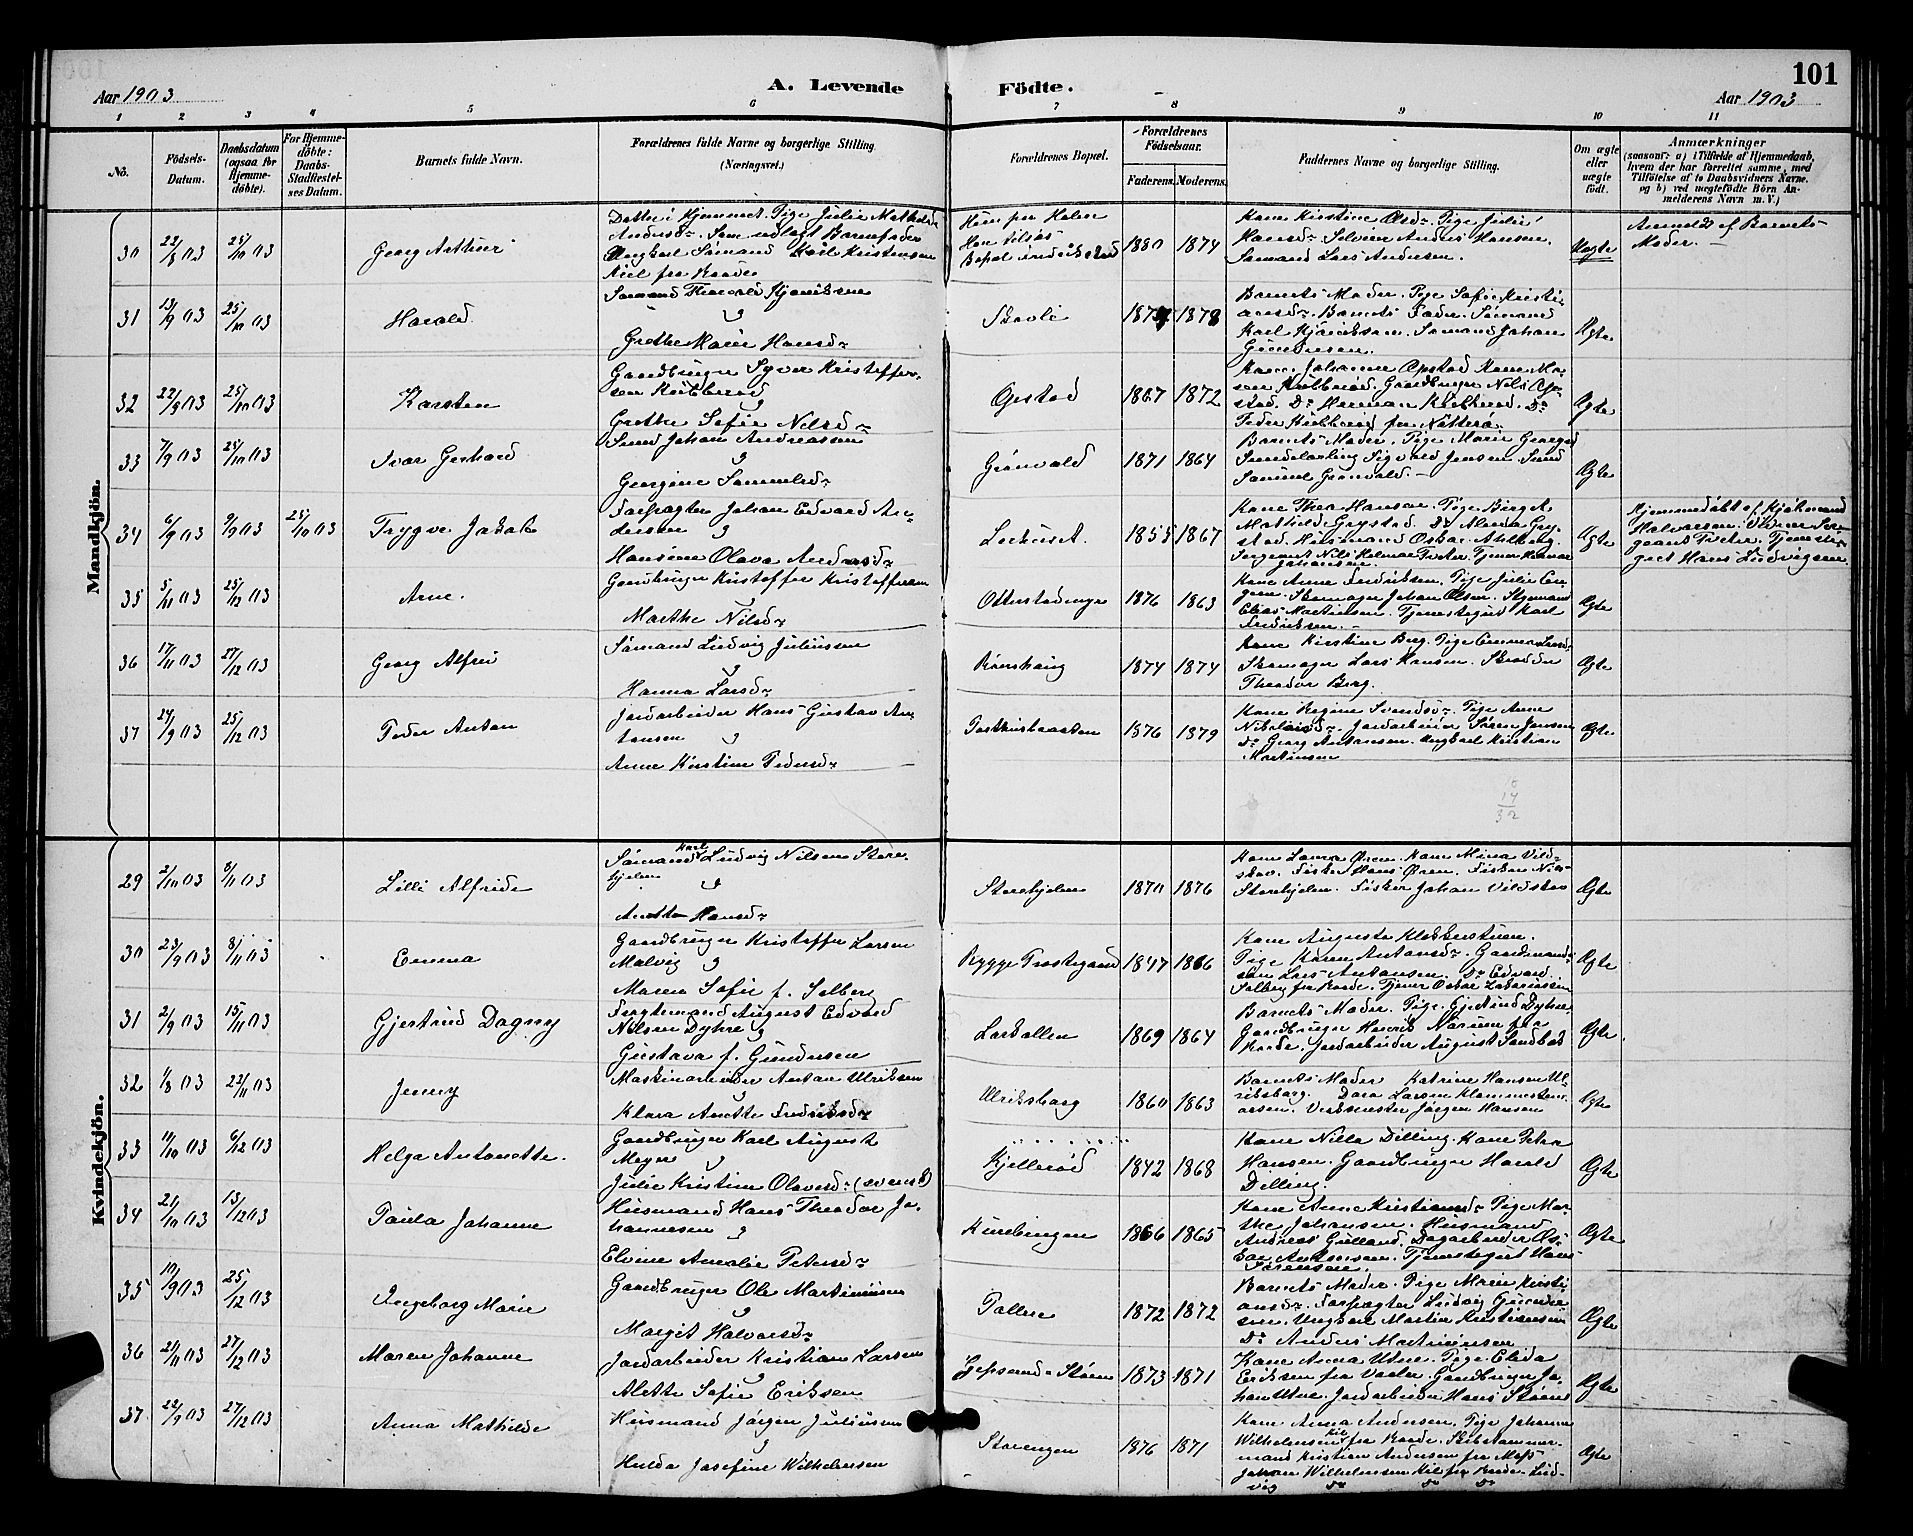 101
Aar 1903
A. Levende
Födte.
Aar 1903
1 2 3 4 5 6 7 8 9 10 11
No.
Födsels-Datum.
Daabsdatum (ogsaa for Hjemmedöbte).
For Hjemmedöbte: Daabs-Stadfæstelses Datum.
Barnets fulde Navn.
Forældrenes fulde Navne og borgerlige Stilling. (Næringsvei.)
Forældrenes Bopæl.
Forældrenes Födselsaar.
Faderens. Moderens.
Faddernes Navne og borgerlige Stilling.
Om ægte eller uægte födt.
Anmærkninger
(saasom: a) i Tilfælde af Hjemmedaab,
hvem der har forrettet samme, med
Tilföielse af to Daabsvidners Navne,
og b) ved uægtefödte Börn An-
melderens Navn m. V.)
Mandkjön.
30 22/8 03 25/10 03 Georg Arthur
Datter i Hjemmet. Pige Julie Mathilde
Andersdr. Som udlagt Barnefader
Ungkarl Sømand Karl Kristensen
Kiel fra Raade
1880 1874
Kone Kirstine Olsdr. Pige Julie
Hansdr. Selveier Anders Hansen.
Sømand Lars Andersen.
Uægte
Anmeldt af Barnets
Moder. —
31 13/9 03 25/10 03 Harald
Grethe Marie Hansdr
1878
Barnets Moder. Pige Sofie Kristi-
ansdr. Barnets Fader. Sømand
Sømand Johan
Gundersen.
Ægte
32 22/9 03 25/10 03 Karsten
Gaardbruger Syver Kristoffer-
sen Kubberød
Grethe Sofie Nilsdr
Opstad 1867 1872
Kone Johanne Opstad. Kone Ma-
ren Kubberød. Gaardbruger Nils Op-
stad. Do Herman Kubberød. Do
Peder Kubberød fra Nøtterø.
Ægte
33 7/9 03 25/10 03 Ivar Gerhard
Smed Johan Andreassen
Georgine Samuelsdr
Grønvold 1871 1864
Barnets Moder. Pige Marie Georgsd
Smedelærling Sigvald Jensen. Smed
Samuel Grønvold. —
Ægte
34 6/9 03 9/9 03 25/10 03 Trygve Jakob
Forpagter Johan Edvard An-
dersen
Hansine Olava Andersdr
1855 1867
Kone Thea Hansen. Pige Birgit
Mathilde Grystad. Do Alma Gry-
stad. Husmand Oskar Ahlberg.
Ægte
Hjemmedøbt af Kjøbmand
Halvorsen.
35 5/11 03 25/12 03 Arne.
Gaardbruger Kristoffer Kristoffersen
Marthe Nilsdr
1876 1863
Kone Anne Fredriksen. Pige Julie
Skomager Johan Olsen. Styrmand
Elias Martinsen. Tjenestegut Karl
Fredriksen. —
Ægte
36 17/11 03 27/12 03 Georg Alfred
Sømand Ludvig Juliussen
Hanna Larsdr
Rønshaug 1874 1874
Kone Kirstine Berg. Pige Emma Larsd
Skomager Lars Hansen. Skrædder
Theodor Berg.
Ægte
37 24/9 03 25/12 03 Peder Anton
Jordarbeider Hans Gustav An-
tonsen
Anne Kirstine Pedersdr
1876 1879
Kone Regine Svendsdr. Pige Anne
Nikolaisdr. Jordarbeider Søren Jensen
Do Georg Antonsen. Ungkarl Kristian
Martinsen
Ægte
Kvindekjön.
29 2/10 03 8/11 03 Lilli Alfride
Sømand Karl Ludvig Nilsen Store-
hjelen
Anette Hansdr
Storehjelen 1870 1876
Kone Laura Øren. Kone Mina Vild-
skov. Fisker Hans Øren. Fisker Nils
Storehjelen. Fisker Johan Vildskov
Ægte
30 23/9 03 8/11 03 Emma
Gaardbruger Kristoffer Larsen
Malvig
Maren Sofie f. Solberg
Rygge Præstegaard 1847 1866
Kone Auguste Klokkerstuen.
Pige Karen Antonsdr. Gaardmands-
søn Lars Antonsen. Do Edvard
Solberg fra Raade. Tjener Oskar Zakariassen
Ægte
31 2/9 03 15/11 03 Gjertrud Dagny
Fragtemand August Edvard
Nilsen Dyhre
Gustava f. Gundersen
Larkollen 1869 1864
Barnets Moder. Pige Gjertrud Dyhre.
Gaardbruger Henrik Nærum fra
Raade. Jordarbeider August Sandbæk
Ægte
32 1/8 03 22/11 03 Jenny
Maskinarbeider Anton Ulriksen
Klara Anette Fredriksdr
Ulriksborg 1860 1863
Barnets Moder Katrine Hansen Ul-
riksborg. Dora Larsen
Verksmester Jørgen Hansen
Ægte
33 11/10 03 6/12 03 Helga Antonette.
Gaardbruger Karl August
Meyer
Julie Kristine Olavesdr (svensk)
Kjellerød 1842 1868
Kone Nilla Dilling. Kone Petra
Hansen. Gaardbruger Harald
Dilling.
Ægte
34 21/10 03 13/12 03 Paula Johanne
Husmand Hans Theodor Jo-
hannesen
Elvine Amalie Petersdr
1866 1865
Kone Anne Kristiansdr. Pige Mar-
the Johansen. Husmand
Andreas Gulland. Dagarbeider Os-
car Antonsen. Tjenestegut Hans
Sørensen.
Ægte
35 10/9 03 25/12 03 Ingeborg Marie
Gaardbruger Ole Martiniusen
Margit Halvorsdr
1872 1872
Barnets Moder. Pige Marie Kristi-
ansdr. Forpagter Ludvig Gunder-
sen. Ungkarl Martin Kristiansen
Do Anders Martiniusen
Ægte
36 21/11 03 27/12 03 Maren Johanne
Jordarbeider Kristian Larsen
Alette Sofie Eriksen
1873 1871
Kone Anna Utne. Pige Elida
Eriksen fra Vaaler. Gaardbruger Jo-
han Utne. Jordarbeider Hans Støim
Ægte
37. 22/9 03 27/12 03 Anna Mathilde
Husmand Jørgen Juliussen
Hulda Josefine Wilhelmsen
Storengen 1876 1871
Kone Anna Andersen. Pige Johanna
Wilhelmsen Kil fra Raade. Skibstømmer-
mand Kristian Andersen fra Moss
Johan Wilhelmsen Kil fra Raade. Lud-
vig Do Do Do
Ægte